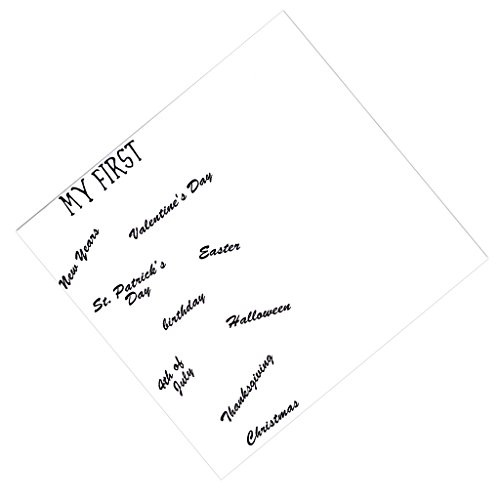 MY FIRST
New Years
Valentine's Day
St. Patrick's
Day
Easter
birthday
4th of
July
Halloween
Thanksgiving
Christmas